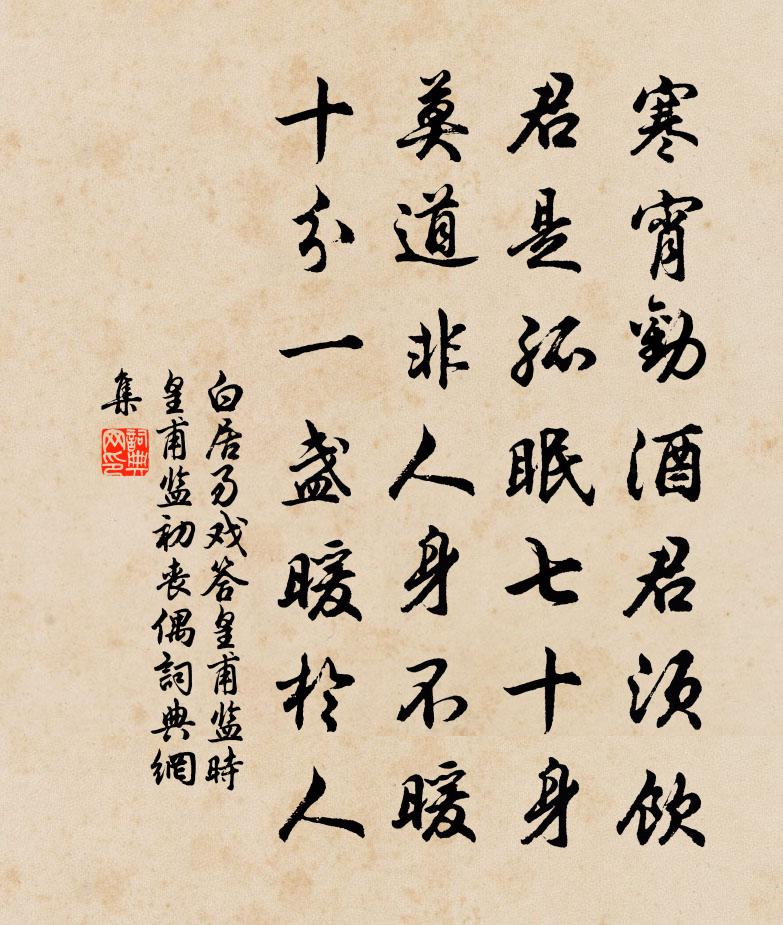 寒宵勸酒君須飲
君是孤眠七十身
莫道非人身不暖
十分一盞暖於人
白居易戏答皇甫监時
皇甫监初丧偶詞典網
集
詞典
网印